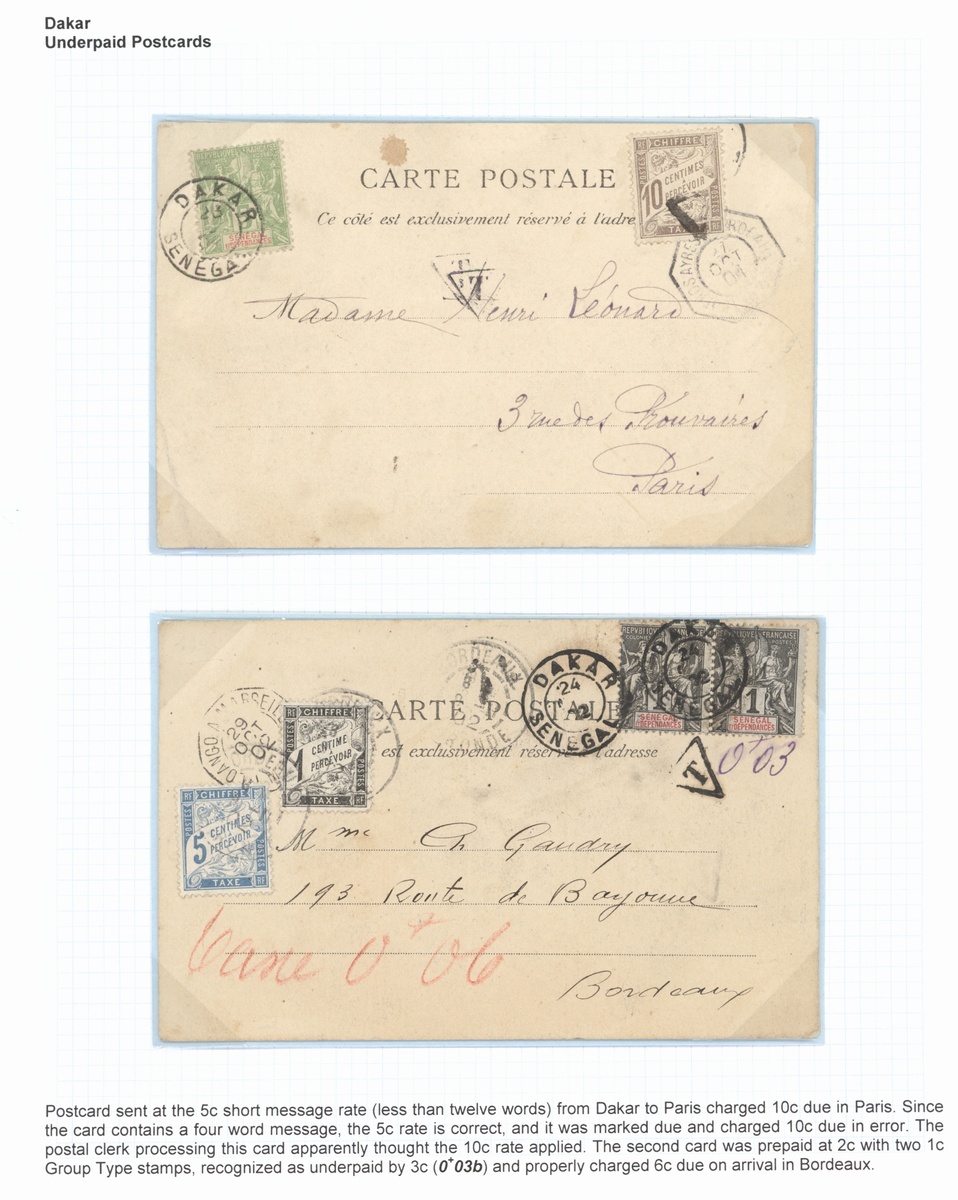 Dakar
Underpaid Postcards
CARTE POSTALE
Ce côté est exclusivement réservé à l'adre
DAKAR
23
SENEGAL
SENEGAL
DEPENDANCES
CHIFFRE
POSTES
10
CENTIMES
À
PERCEVOIR
TAXE
7
OCT
04
T
T
Madame Henri Léonard
3 rue des Prouvaires
Paris
BORDEAUX
DAKAR
24
SENEGAL
DAKAR
24
SENEGAL
REPVBLIQVE FRANÇAISE
1
SENEGAL
DEPENDANCES
1
SENEGAL
DEPENDANCES
MARSEILLE
29
OCT
02
CHIFFRE
POSTES
1
CENTIME
À
PERCEVOIR
RF
TAXE
RF
CARTE POSTALE
est exclusivement réservé à l'adresse
T
0+03
RF
CHIFFRE
RF
POSTES
5
CENTIMES
À
PERCEVOIR
POSTES
TAXE
RF
Mme Ch Gaudry
193 Route de Bayonne
Taxe 0+06
Bordeaux
Postcard sent at the 5c short message rate (less than twelve words) from Dakar to Paris charged 10c due in Paris. Since
the card contains a four word message, the 5c rate is correct, and it was marked due and charged 10c due in error. The
postal clerk processing this card apparently thought the 10c rate applied. The second card was prepaid at 2c with two 1c
Group Type stamps, recognized as underpaid by 3c (0+03b) and properly charged 6c due on arrival in Bordeaux.